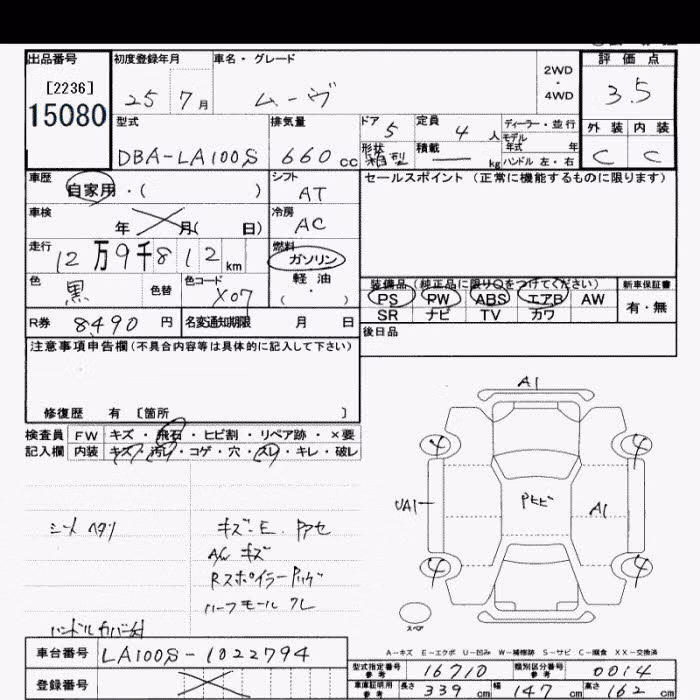 出品番号 初度登録年月 車名・グレード 2WD・4WD 評価点
[2236]
15080 25 7月 ムーヴ 3.5
型式 排気量 ドア 定員 ディーラー・並行 外装 内装
DBA-LA100S 660cc 5 4人 モデル年式 年 C C
形状 箱型 積載 — kg ハンドル 左・右
車歴 シフト セールスポイント (正常に機能するものに限ります)
自家用・( ) AT
車検 冷房
年 月( 日) AC
走行 燃料
12万9千812km ガソリン
色 色替 色コード 軽油 装備品 (純正品に限り○をつけてください) 新車保証書
黒 X07 (・) PS PW ABS エアB AW 有・無
SR ナビ TV カワ
R券 8490円 名変通知期限 月 日 後日品
注意事項申告欄 (不具合内容等は具体的に記入して下さい)
修復歴 有 [箇所 ]
検査員 FW キズ・飛石・ヒビ割・リペア跡・×要
記入欄 内装 キズ・汚レ・コゲ・穴・スレ・キレ・破レ
A1
4 4
UA1 A1
4 4
スペア
シート ヘタリ キズ・E.
A/C キズ
Rスポイラー
ハーフモール クレ
ハンドルカバー付
A-キズ E-エクボ U-凹み W-補修跡 S-サビ C-腐食 XX-交換済
車台番号 LA100S-1022794 型式指定番号 参考 16710 類別区分番号 参考 0014
登録番号 車庫証明用 参考 長さ 339cm 幅 147cm 高さ 162cm